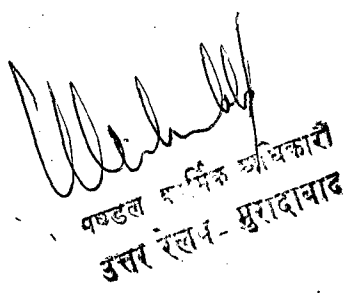 मण्डल कार्मिक अधिकारी
उत्तर रेलवे - मुरादाबाद